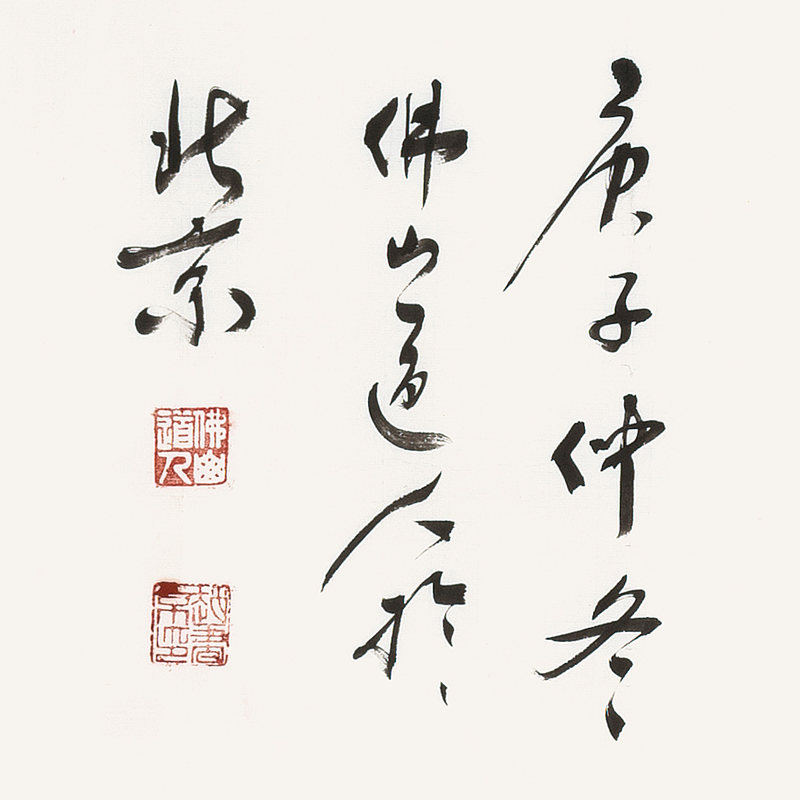 庚子仲冬
佛山道人於
北京
佛
道人